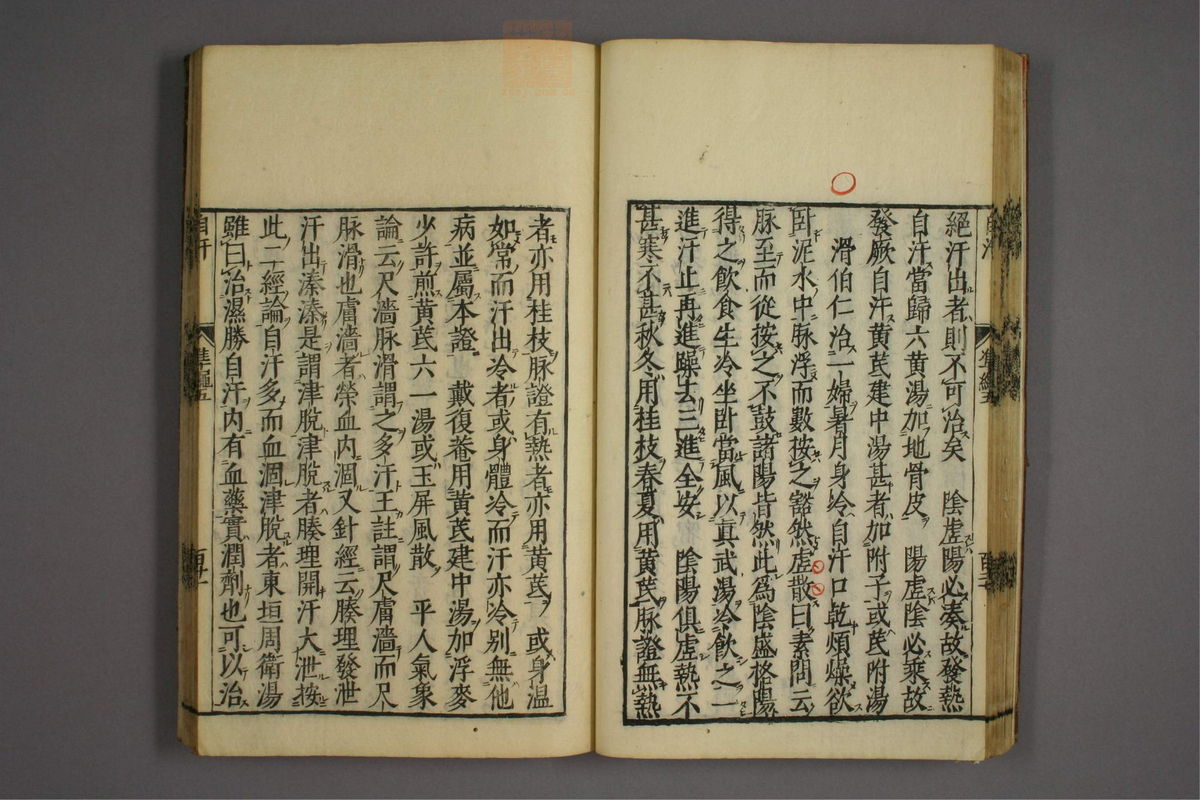 絕汗出者則不可治矣　陰虛陽必湊故發熱
自汗當歸六黃湯加地骨皮　陽虛陰必乘故
發厥自汗黃芪建中湯甚者加附子或芪附湯
滑伯仁治一婦暑月身冷自汗口乾煩燥欲
卧泥水中脉浮而數按之豁然虛散曰素問云
脉至而從按之不鼓諸陽皆然此爲陰盛格陽
得之飲食生冷坐卧當風以真武湯冷飲之一
進汗止再進躁去三進全安　陰陽俱虛熱不
甚寒不甚秋冬用桂枝春夏用黃芪脉證無熱
者亦用桂枝脉證有熱者亦用黃芪　或身温
如常而汗出冷者或身體冷而汗亦冷别無他
病並屬本證　戴復菴用黃芪建中湯加浮麥
少許煎黃芪六一湯或玉屏風散　平人氣象
論云尺濇脉滑謂之多汗王註謂尺膚濇而尺
脉滑也膚濇者榮血内涸又針經云腠理發泄
汗出溱溱是謂津脫津脫者腠理開汗大泄按
此二經論自汗多而血涸津脫者東垣周衛湯
雖曰治濕勝自汗内有血藥實潤劑也可以治
自汗